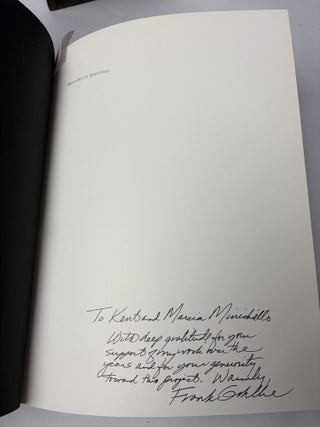 To Kent and Marcia Minichello
With deep gratitude for your
support of my work over the
years and for your generosity
toward this project. Warmly
Frank Gohlke